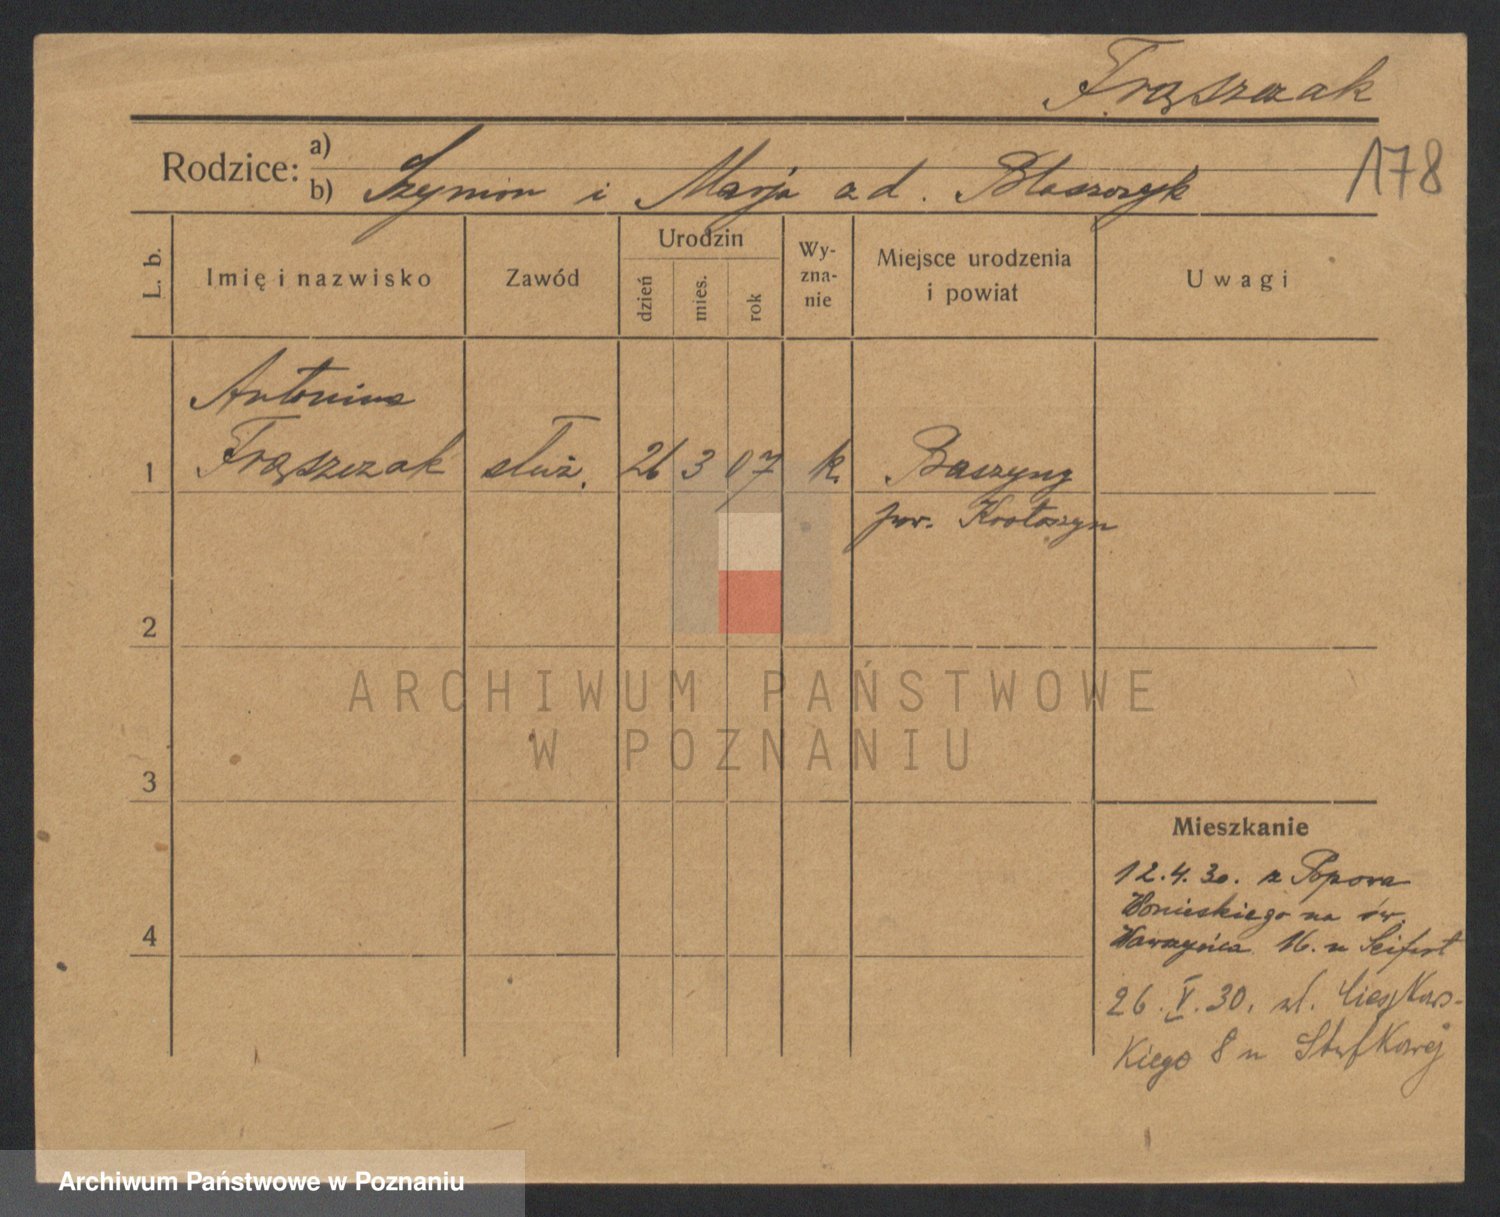 Frąszczak
178
Rodzice: a)
b) Szymon i Marja z d. Błaszczyk
L. b.
Imię i nazwisko
Zawód
Urodzin
dzień
mies.
rok
Wy-
zna-
nie
Miejsce urodzenia
i powiat
Uwagi
Antonina
1 Frąszczak służ. 26 3 07 k. Baszyny
pow. Krotoszyn
2
3
4
ARCHIWUM PAŃSTWOWE
W POZNANIU
Mieszkanie
12.4.30. z Popowa
na św.
Wawrzyńca 16. u Seifert
26.V.30. ul.
kiego 8 u
Archiwum Państwowe w Poznaniu